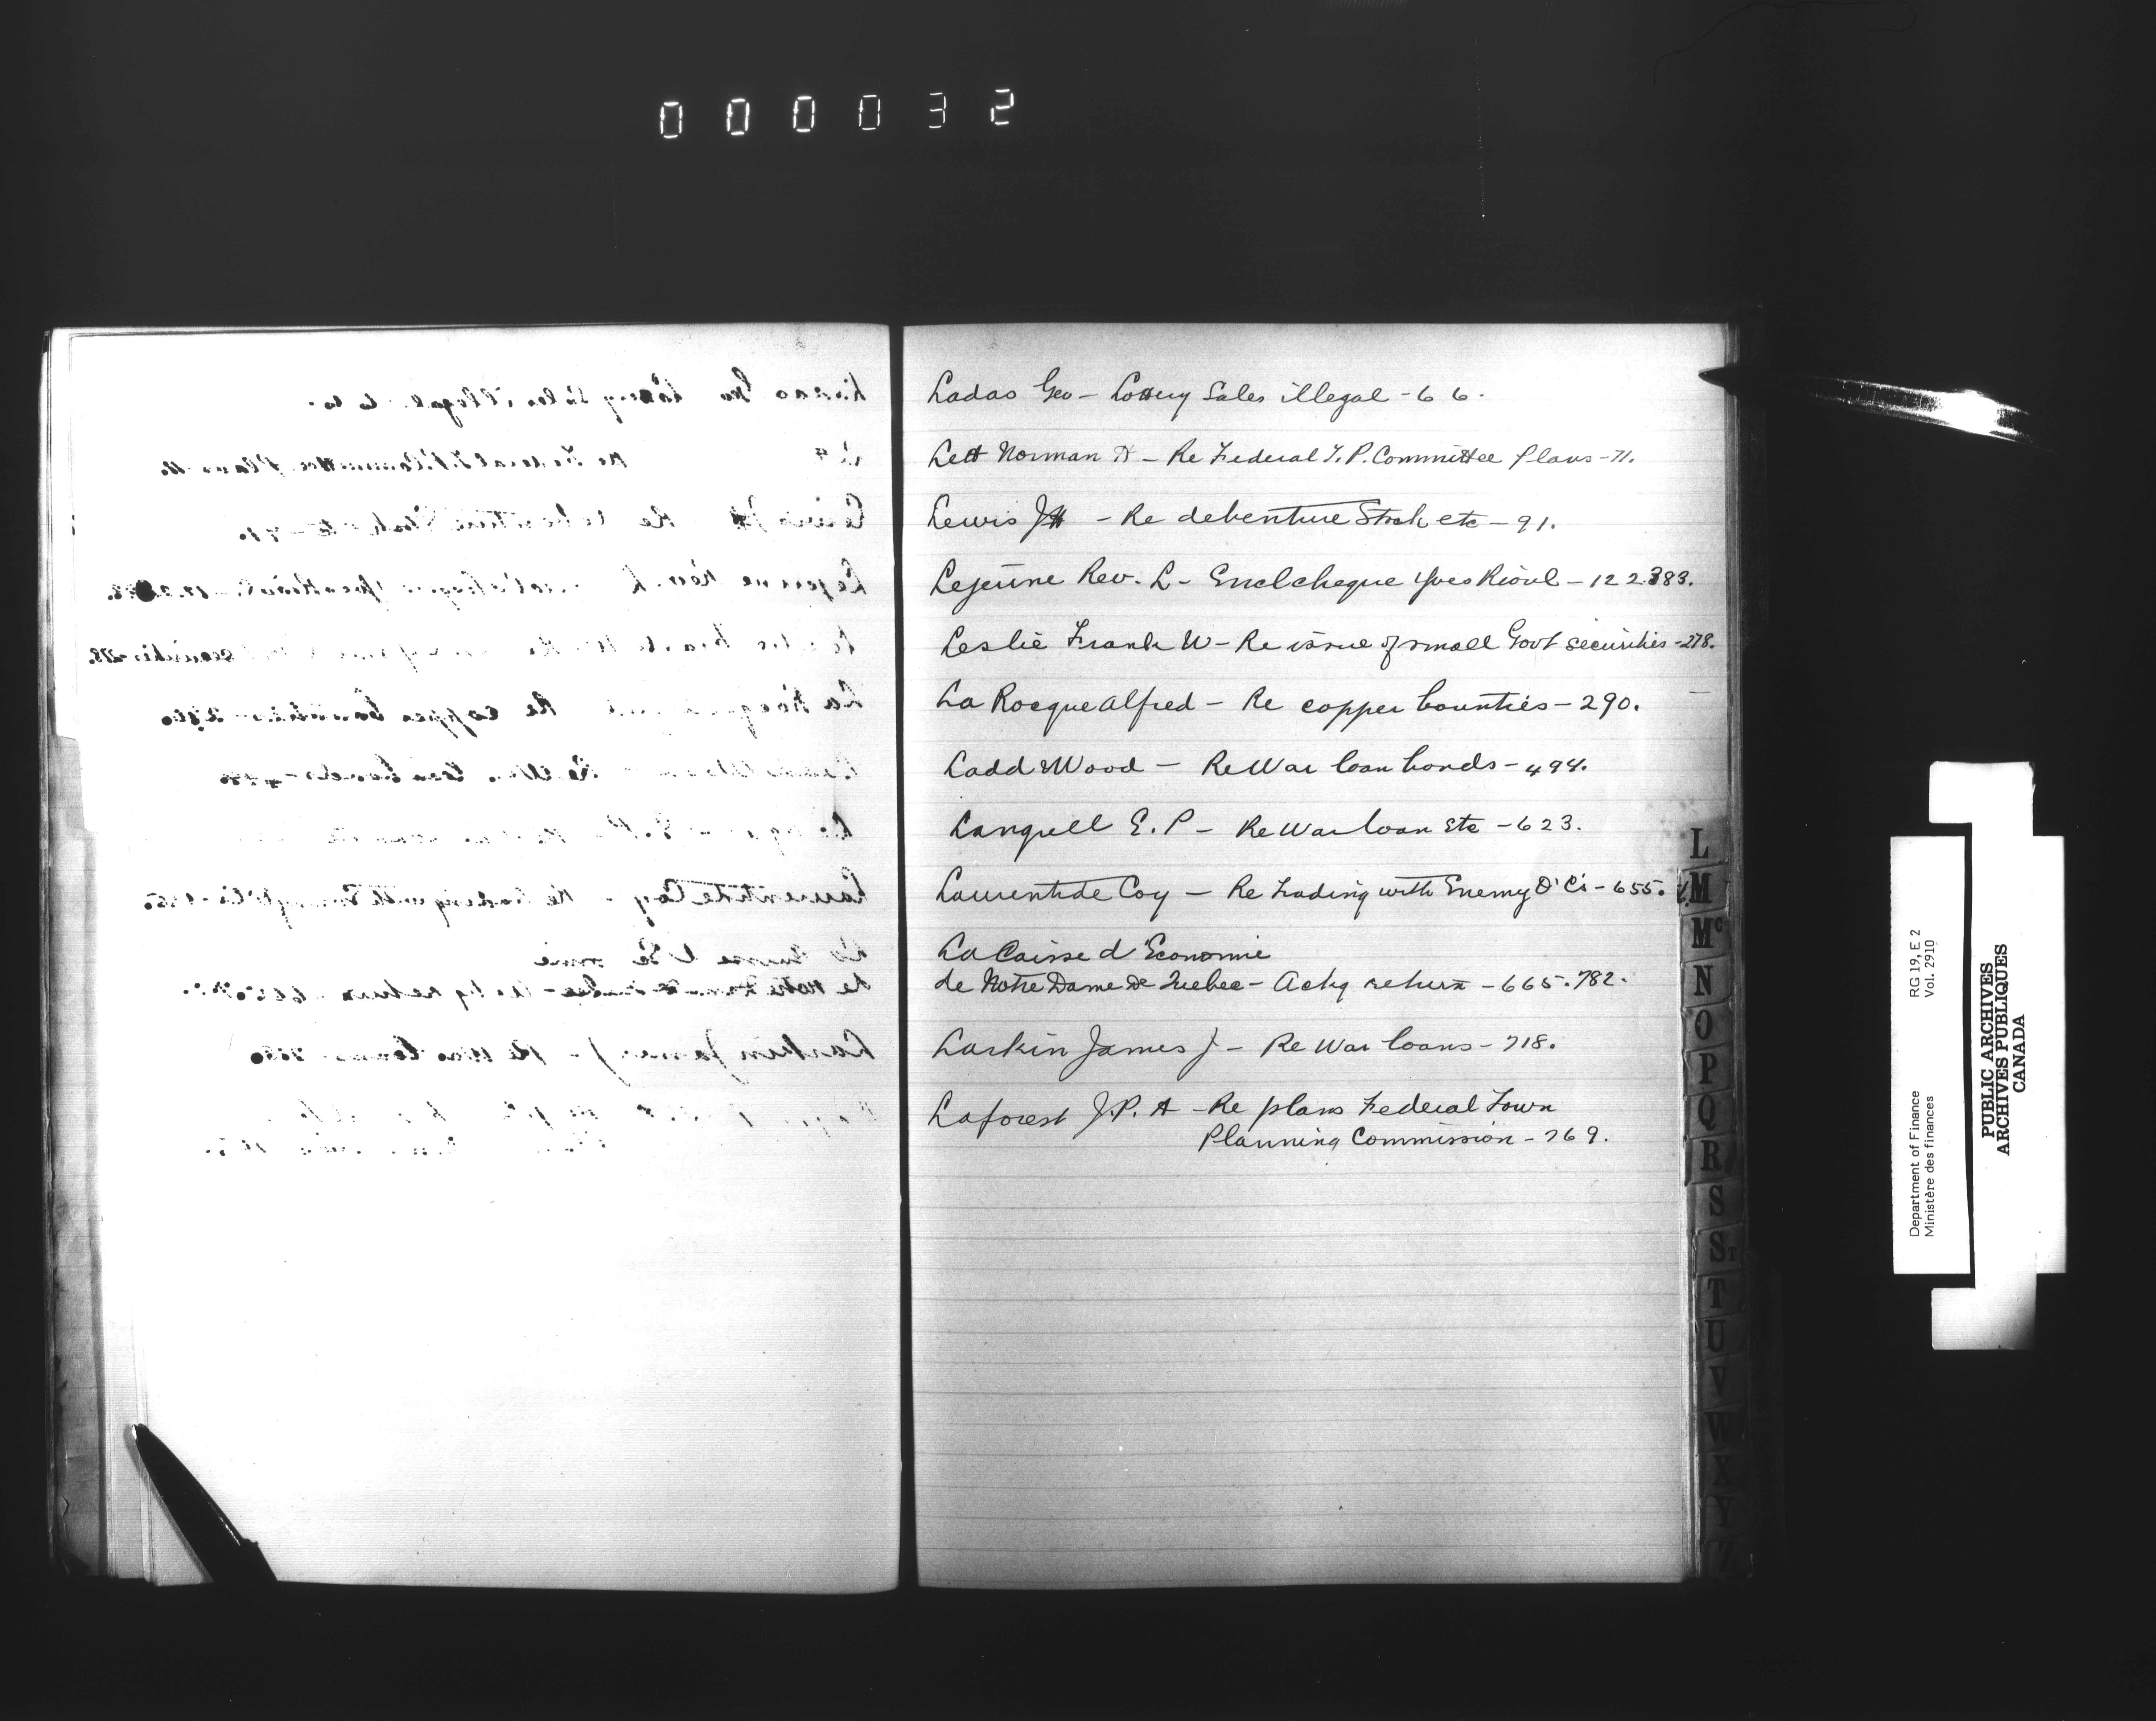 000032
Ladas Geo - Lottery Sales illegal - 66.
Lett Norman H - Re Federal T.P. Committee Plans - 71.
Lewis JH - Re debenture Stock etc - 91.
Lejeune Rev. L - Encl cheque Yves Rioul - 122.383.
Leslie Frank W - Re issue of small Govt securities - 278.
La Rocque Alfred - Re copper bounties - 290.
Ladd & Wood - Re War loan bonds - 494.
Langrell E.P - Re War loan etc - 623.
Laurentide Coy - Re trading with Enemy O'Cs - 655.
La Caisse d'Economie
de Notre Dame De Quebec - Ackg return - 665.782.
Larkin James J - Re War loans - 718.
Laforest J.P. A - Re plans Federal Town
Planning Commission - 769.
L
M
Mc
N
O
P
Q
R
S
T
U
V
W
X
Y
Z
Department of Finance RG 19, E 2
Ministère des finances Vol. 2910
PUBLIC ARCHIVES
ARCHIVES PUBLIQUES
CANADA